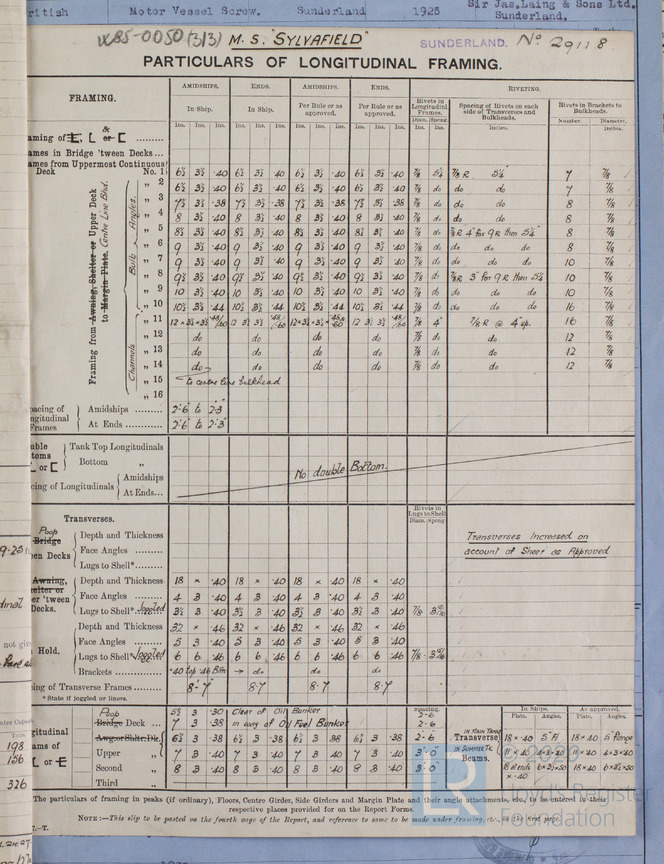 ritish Motor Vessel Screw. Sunderland 1925 Sir Jas. Laing & Sons Ltd.
Sunderland.
W85-0050 (3/3) M.S. "SYLVAFIELD" SUNDERLAND. No 29118
PARTICULARS OF LONGITUDINAL FRAMING.
FRAMING. AMIDSHIPS. ENDS. AMIDSHIPS. ENDS. RIVETING.
In Ship. In Ship. Per Rule or as approved. Per Rule or as approved. Rivets in Longitudinal Frames. Spacing of Rivets on each side of Transverses and Bulkheads. Rivets in Brackets to Bulkheads.
Ins. Ins. Ins. Ins. Ins. Ins. Ins. Ins. Ins. Ins. Ins. Ins. Diam. Spcng. Ins. Ins. Inches. Number. Diameter. Inches.
aming of E, L & or C
ames in Bridge 'tween Decks ...
ames from Uppermost Continuous
Deck No. 1 6½ 3½ .40 6½ 3½ .40 6½ 3½ .40 6½ 3½ .40 7/8 5¼ 7/8 R 5¼" 7 7/8
„ 2 6½ 3½ .40 6½ 3½ .40 6½ 3½ .40 6½ 3½ .40 7/8 do do do 7 7/8
„ 3 7½ 3½ .38 7½ 3½ .38 7½ 3½ .38 7½ 3½ .38 7/8 do do do 8 7/8
„ 4 8 3½ .40 8 3½ .40 8 3½ .40 8 3½ .40 7/8 do do do 8 7/8
„ 5 8½ 3½ .40 8½ 3½ .40 8½ 3½ .40 8½ 3½ .40 7/8 do 7/8 R 4" for 9 R then 5¼" 8 7/8
„ 6 9 3½ .40 9 3½ .40 9 3½ .40 9 3½ .40 7/8 do do do do 8 7/8
„ 7 9 3½ .40 9 3½ .40 9 3½ .40 9 3½ .40 7/8 do do do do 10 7/8
„ 8 9½ 3½ .40 9½ 3½ .40 9½ 3½ .40 9½ 3½ .40 7/8 do 7/8 R 3" for 9 R then 5¼ 10 7/8
„ 9 10 3½ .40 10 3½ .40 10 3½ .40 10 3½ .40 7/8 do do do do 10 7/8
„ 10 10½ 3½ .44 10½ 3½ .44 10½ 3½ .44 10½ 3½ .44 7/8 do do do do 16 7/8
„ 11 12 × 3½ × 3½ .48/.60 12 3½ 3½ .48/.60 12 × 3½ × 3½ .48/.60 12 3½ 3½ .48/.60 7/8 4" 7/8 R @ 4" sp. 16 7/8
„ 12 do do do do 7/8 do do 12 7/8
„ 13 do do do do 7/8 do do 12 7/8
„ 14 do do do do 7/8 do do 12 7/8
„ 15 to centre line bulkhead
„ 16
Framing from Awning, Shelter or Upper Deck
to Margin Plate. Centre Line Bhd.
Bulb Angles.
Channels
pacing of
ngitudinal
Frames
Amidships 2'-6" to 2'-3"
At Ends 2'-6" to 2'-3"
uble
toms
L or C
Tank Top Longitudinals
Bottom „
cing of Longitudinals Amidships
At Ends...
No double Bottom.
Transverses. Rivets in Lugs to Shell Diam. Spcng
Poop
Bridge
een Decks
Depth and Thickness
Face Angles
Lugs to Shell*
Transverses Increased on
account of Sheer as Approved
Awning,
elter or
er 'tween
Decks.
Depth and Thickness 18 × .40 18 × .40 18 × .40 18 × .40
Face Angles 4 3 .40 4 3 .40 4 3 .40 4 3 .40
Lugs to Shell* joggled 3½ 3 .40 3½ 3 .40 3½ 3 .40 3½ 3 .40 7/8
Hold.
Depth and Thickness 32 × .46 32 × .46 32 × .46 32 × .46
Face Angles 5 3 .40 5 3 .40 5 3 .40 5 3 .40
Lugs to Shell* joggled 6 6 .46 6 6 .46 6 6 .46 6 6 .46 7/8
Brackets .40 top .46 Btm → do do do
ing of Transverse Frames 8'-7" 8-7 8-7 8-7
* State if joggled or liners.
ngitudinal
ams of
L or E
Poop
Bridge Deck ... 5½ 3 .30 Clear of Oil Bunker 2-6
7 3 .38 in way of Oil Fuel Bunker 2-6
Awg or Shltr. Dk. 6½ 3 .38 6½ 3 .38 6½ 3 .38 6½ 3 .38 2-6
Upper „ 7 3 .40 7 3 .40 7 3 .40 7 3 .40 3'-0"
Second „ 8 3 .40 8 3 .40 8 3 .40 8 3 .40 3'-0"
Third „
spacing.
In Ships. As approved.
Plate. Angles. Plate. Angles.
IN MAIN TANKS
Transverse 18 × .40 5" Fl 18 × .40 5" flange
IN SUMMER TK
Beams. 11 × .40 4×3×.40 11 × .40 4×3×.40
The particulars of framing in peaks (if ordinary), Floors, Centre Girder, Side Girders and Margin Plate and their angle attachments, etc., to be entered in their
respective places provided for on the Report Forms.
NOTE:—This slip to be pasted on the fourth page of the Report, and reference to same to be made under framing, etc., on the first page.
Lloyd's Register
Foundation
9.25
not giv
198
156
326